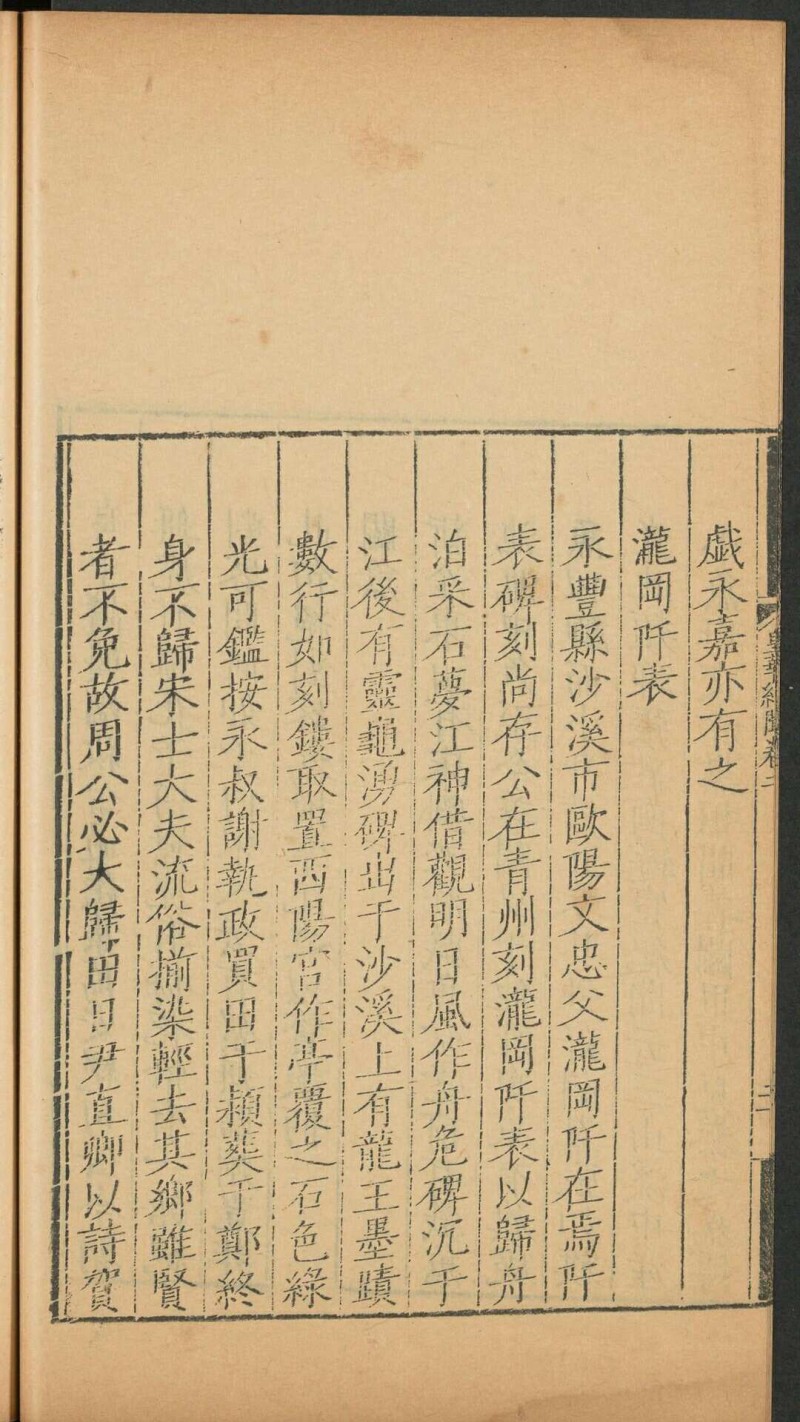 皇華紀聞卷二
二
戯永嘉亦有之
瀧岡阡表
永豐縣沙溪市歐陽文忠父瀧岡阡在焉阡
表碑刻尚存公在青州刻瀧岡阡表以歸舟
泊采石夢江神借觀明日風作舟危碑沉于
江後有靈龜湧碑出于沙溪上有龍王墨蹟
數行如刻鏤取置西陽宮作亭覆之石色綠
光可鑑按永叔謝執政買田于潁葬于鄭終
身不歸宋士大夫流俗搚染輕去其鄉雖賢
者不免故周公必大歸田日尹直卿以詩賀